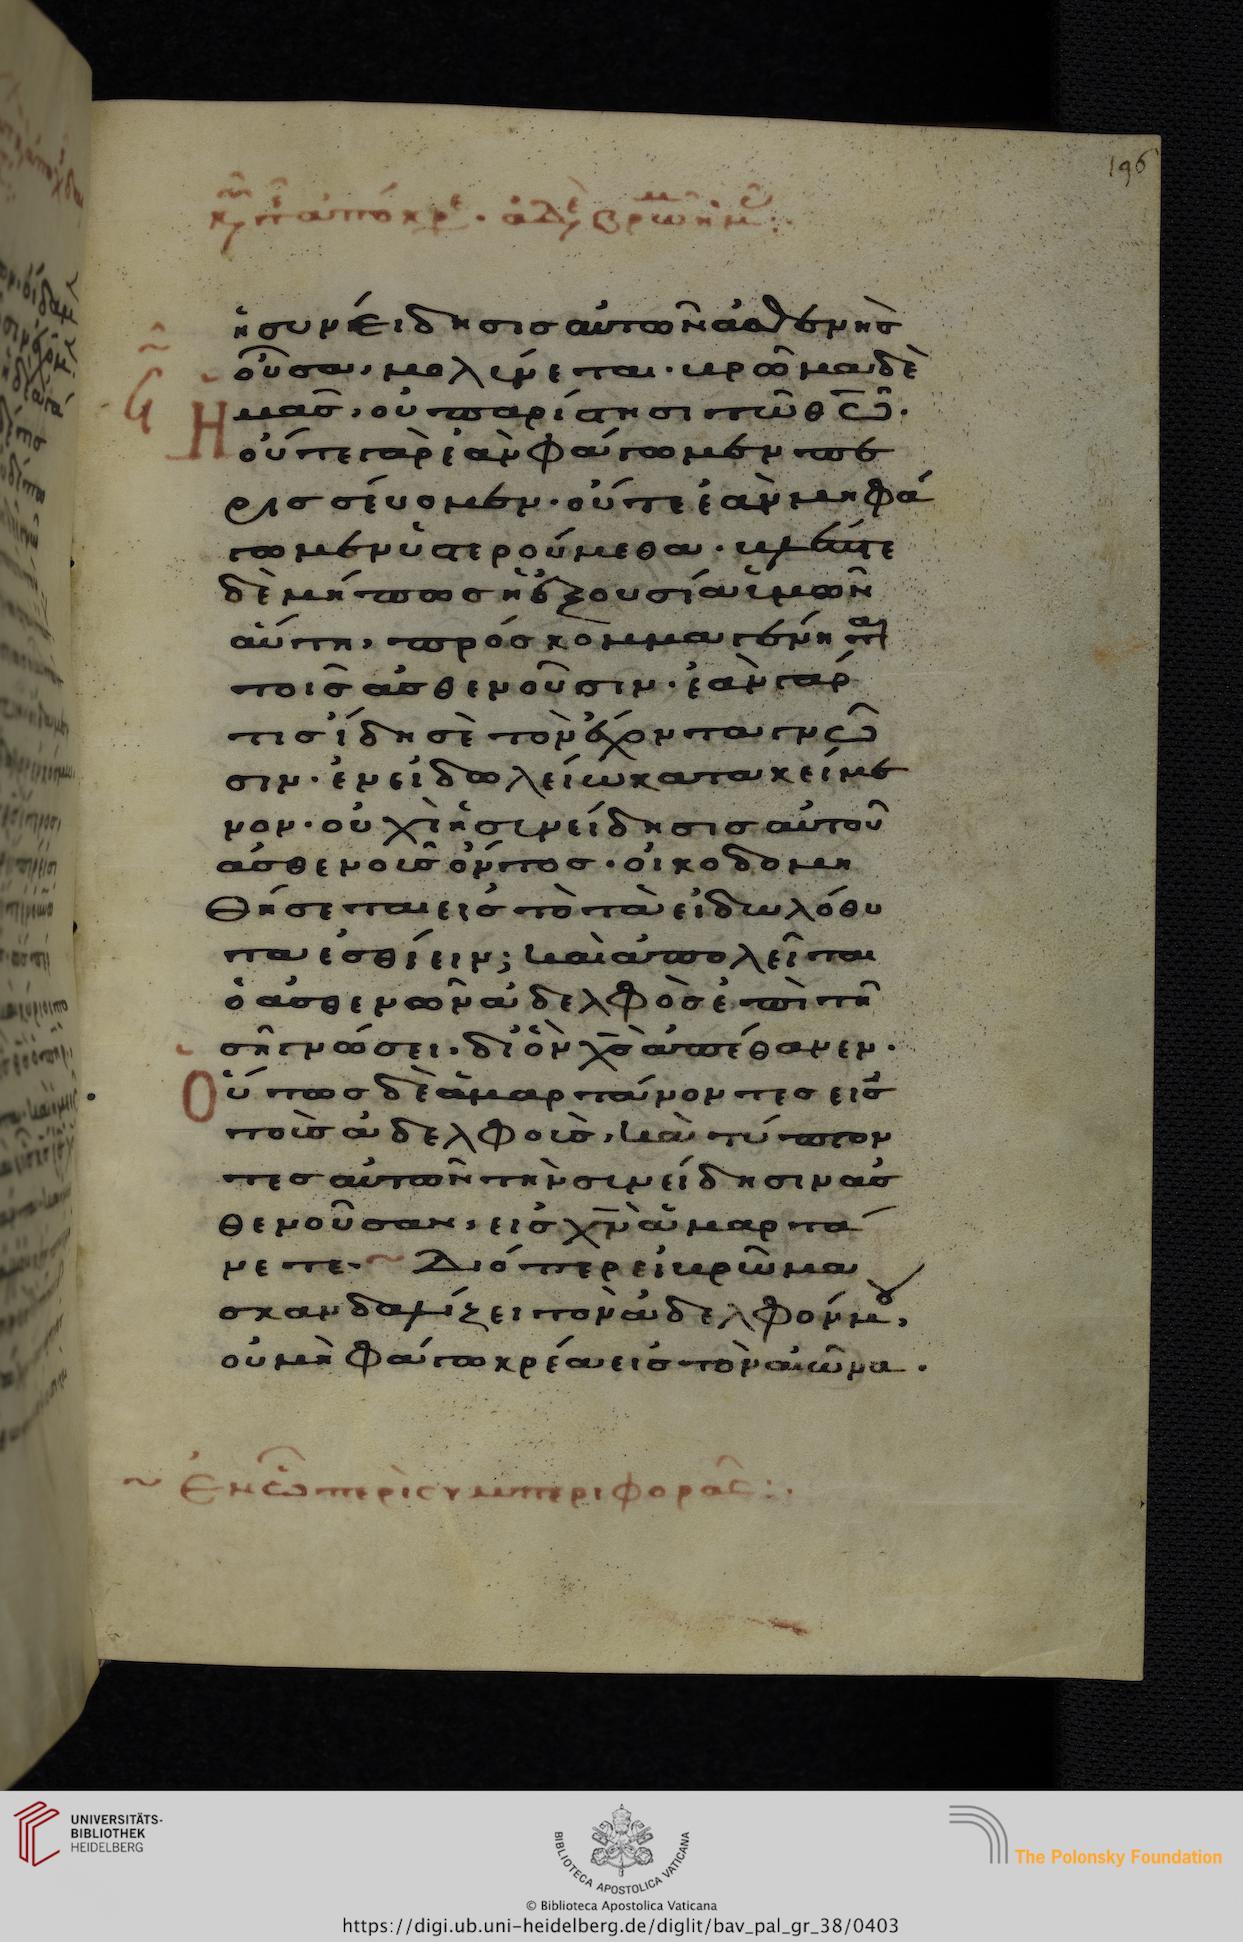 196
κυ τῆ ἀπόκρε · ἀδε βρῶμ ἡμ
ἡ συνείδησις αὐτῶν ἀσθενὴς
οὖσα, μολύνεται · βρῶμα δὲ
μᾶς, οὐ παρίστησι τῶ θῶ.
Η οὔτε γὰρ ἐὰν φάγωμεν πε
ρισσεύομεν · οὔτε ἐὰν μὴ φά
γωμεν ὑστερούμεθα · βλέπετε
δὲ μήπως ἡ ἐξουσία ὑμῶν
αὕτη, πρόσκομμα γένηται
τοῖς ἀσθενοῦσιν · ἐὰν γάρ
τις ἴδη σὲ τὸν ἔχοντα γνῶ
σιν · ἐν εἰδωλείω κατακείμε
νον · οὐχὶ ἡ συνείδησις αὐτοῦ
ἀσθενοῦς ὄντος · οἰκοδομη
θήσεται εἰς τὸ τὰ εἰδωλόθυ
τα ἐσθίειν; καὶ ἀπολεῖται
ὁ ἀσθενῶν ἀδελφὸς ἐπὶ τῆ
σῆ γνώσει · δι' ὃν χς ἀπέθανεν ·
Οὕτως δὲ ἁμαρτάνοντες εἰς
τοὺς ἀδελφοὺς, καὶ τύπτον
τες αὐτῶν τὴν συνείδησιν ἀσ
θενοῦσαν, εἰς χν ἁμαρτά
νετε · Διόπερ εἰ βρῶμα
σκανδαλίζει τὸν ἀδελφόν μου,
οὐ μὴ φάγω κρέα εἰς τὸν αἰῶνα ·
~ Ἐν ὧ περὶ συμπεριφορᾶς :·
UNIVERSITÄTS-
BIBLIOTHEK
HEIDELBERG
BIBLIOTECA APOSTOLICA VATICANA
The Polonsky Foundation
© Biblioteca Apostolica Vaticana
https://digi.ub.uni-heidelberg.de/diglit/bav_pal_gr_38/0403